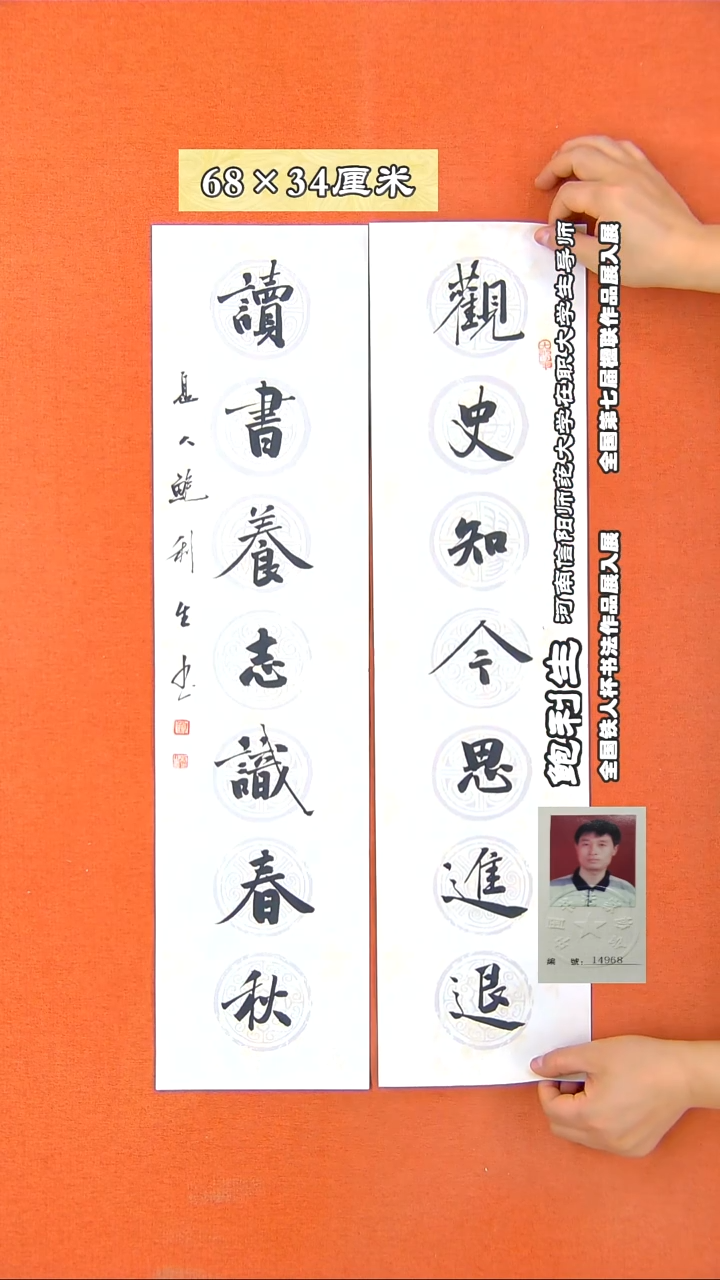 68×34厘米
觀史知今思進退
讀書養志識春秋
長人鮑利生书
鲍利生
河南信阳师范大学在职大学生导师
全国第七届楹联作品展入展
全国铁人杯书法作品展入展
编 號：14968